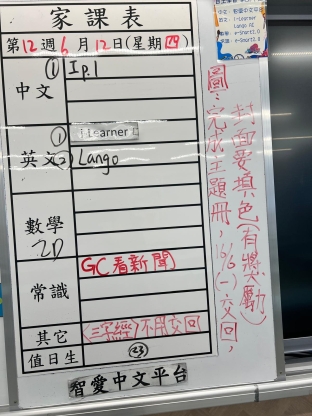 家課表
第12週6月12日(星期四)
中文
① Ip.1
英文
① i-Learner
② Lango
數學
2D
常識
GC看新聞
其它
《三字經》不用交回
值日生
㉓
智愛中文平台
圖：完成主題冊，16/6(一)交回，
封面要填色(有獎勵)